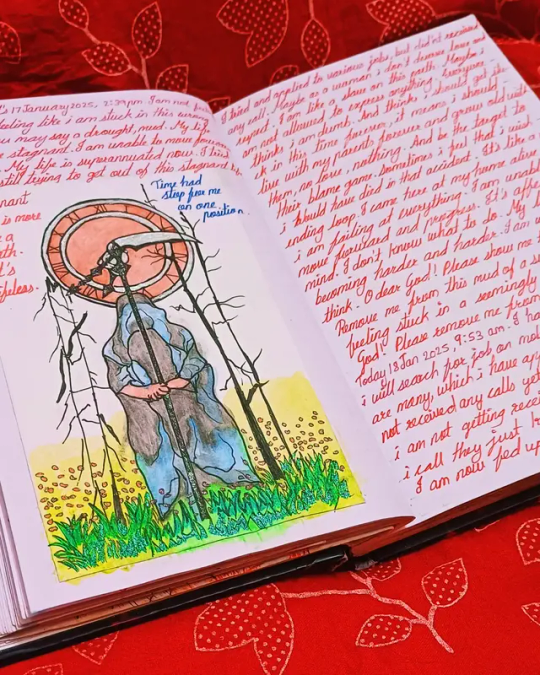 17 January 2025, 2:39pm. I am not
like i am stuck in this wrong
you may say a drought, mud. My life
stagnant. I am unable to move forward
. My life is superannuated now. I tried
still trying to get out of this stagnant
nant
is more
e a
th.
t's
feless.
Time had
stop for me
on one
position.
I tried and applied to various jobs, but didn't received
any call. Maybe as a woman i don't deserve love and
respect. I am like a slave on this path. Maybe i
am not allowed to express anything. Everyone
thinks i am dumb. And think i should get
ck in this time forever, it means i should
live with my parents forever and grow old with
them, no love, nothing. And be the target to
their blame game. Sometimes i feel that i wish
i would have died in that accident. It's like a
ending loop. I came here at my home alive
i am failing at everything. I am unable
move forward and progress. It's affe
mind. I don't know what to do. My l
becoming harder and harder. I am u
think. O dear God! Please show me t
Remove me from this mud of a s
feeling stuck in a seemingly
God! Please remove me from
Today 18 Jan 2025, 9:53 am. I ha
i will search for job on
are many, which i have ap
not received any calls yet
i am not getting recei
i call they just
I am now fed up